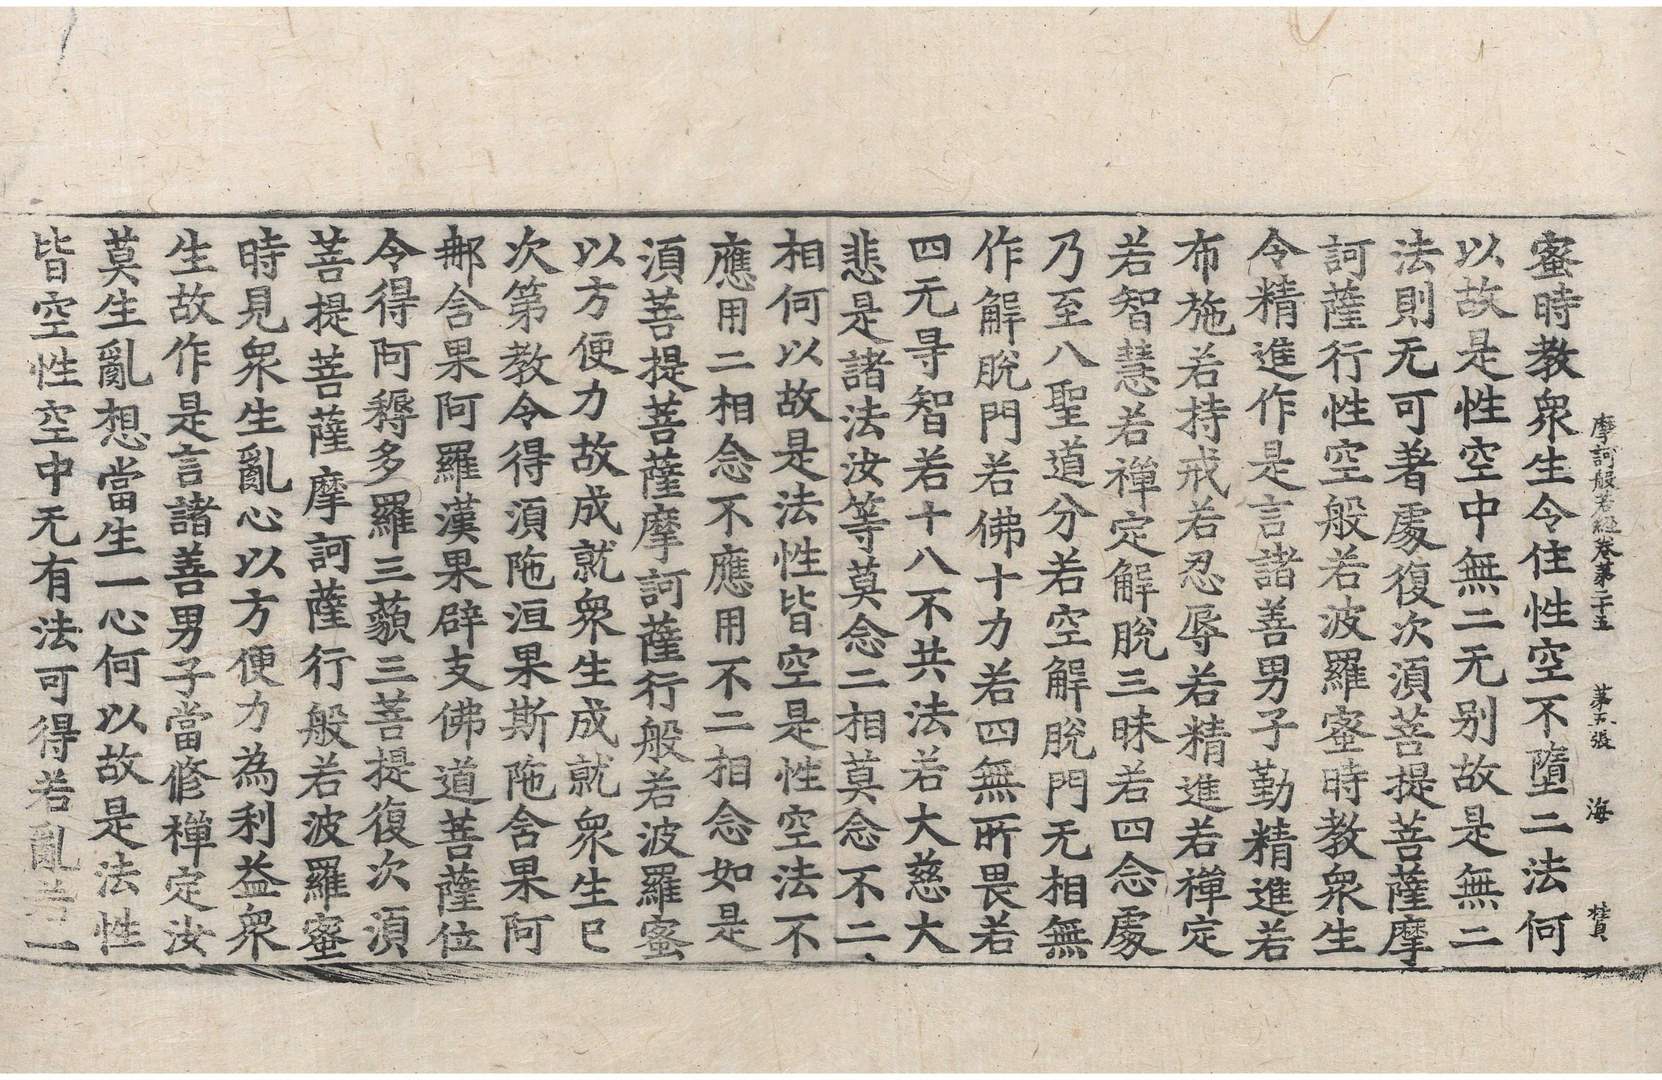 摩訶般若經卷第二十五　第五張　海　賛
蜜時教衆生令住性空不墮二法何
以故是性空中無二无别故是無二
法則无可著處復次湏菩提菩薩摩
訶薩行性空般若波羅蜜時教衆生
令精進作是言諸善男子勤精進若
布施若持戒若忍辱若精進若禪定
若智慧若禪定解脫三昧若四念處
乃至八聖道分若空解脫門无相無
作解脫門若佛十力若四無所畏若
四无㝵智若十八不共法若大慈大
悲是諸法汝等莫念二相莫念不二
相何以故是法性皆空是性空法不
應用二相念不應用不二相念如是
湏菩提菩薩摩訶薩行般若波羅蜜
以方便力故成就衆生成就衆生已
次第教令得湏陁洹果斯陁含果阿
那含果阿羅漢果辟支佛道菩薩位
令得阿耨多羅三藐三菩提復次湏
菩提菩薩摩訶薩行般若波羅蜜
時見衆生亂心以方便力為利益衆
生故作是言諸善男子當修禪定汝
莫生亂想當生一心何以故是法性
皆空性空中无有法可得若亂若一